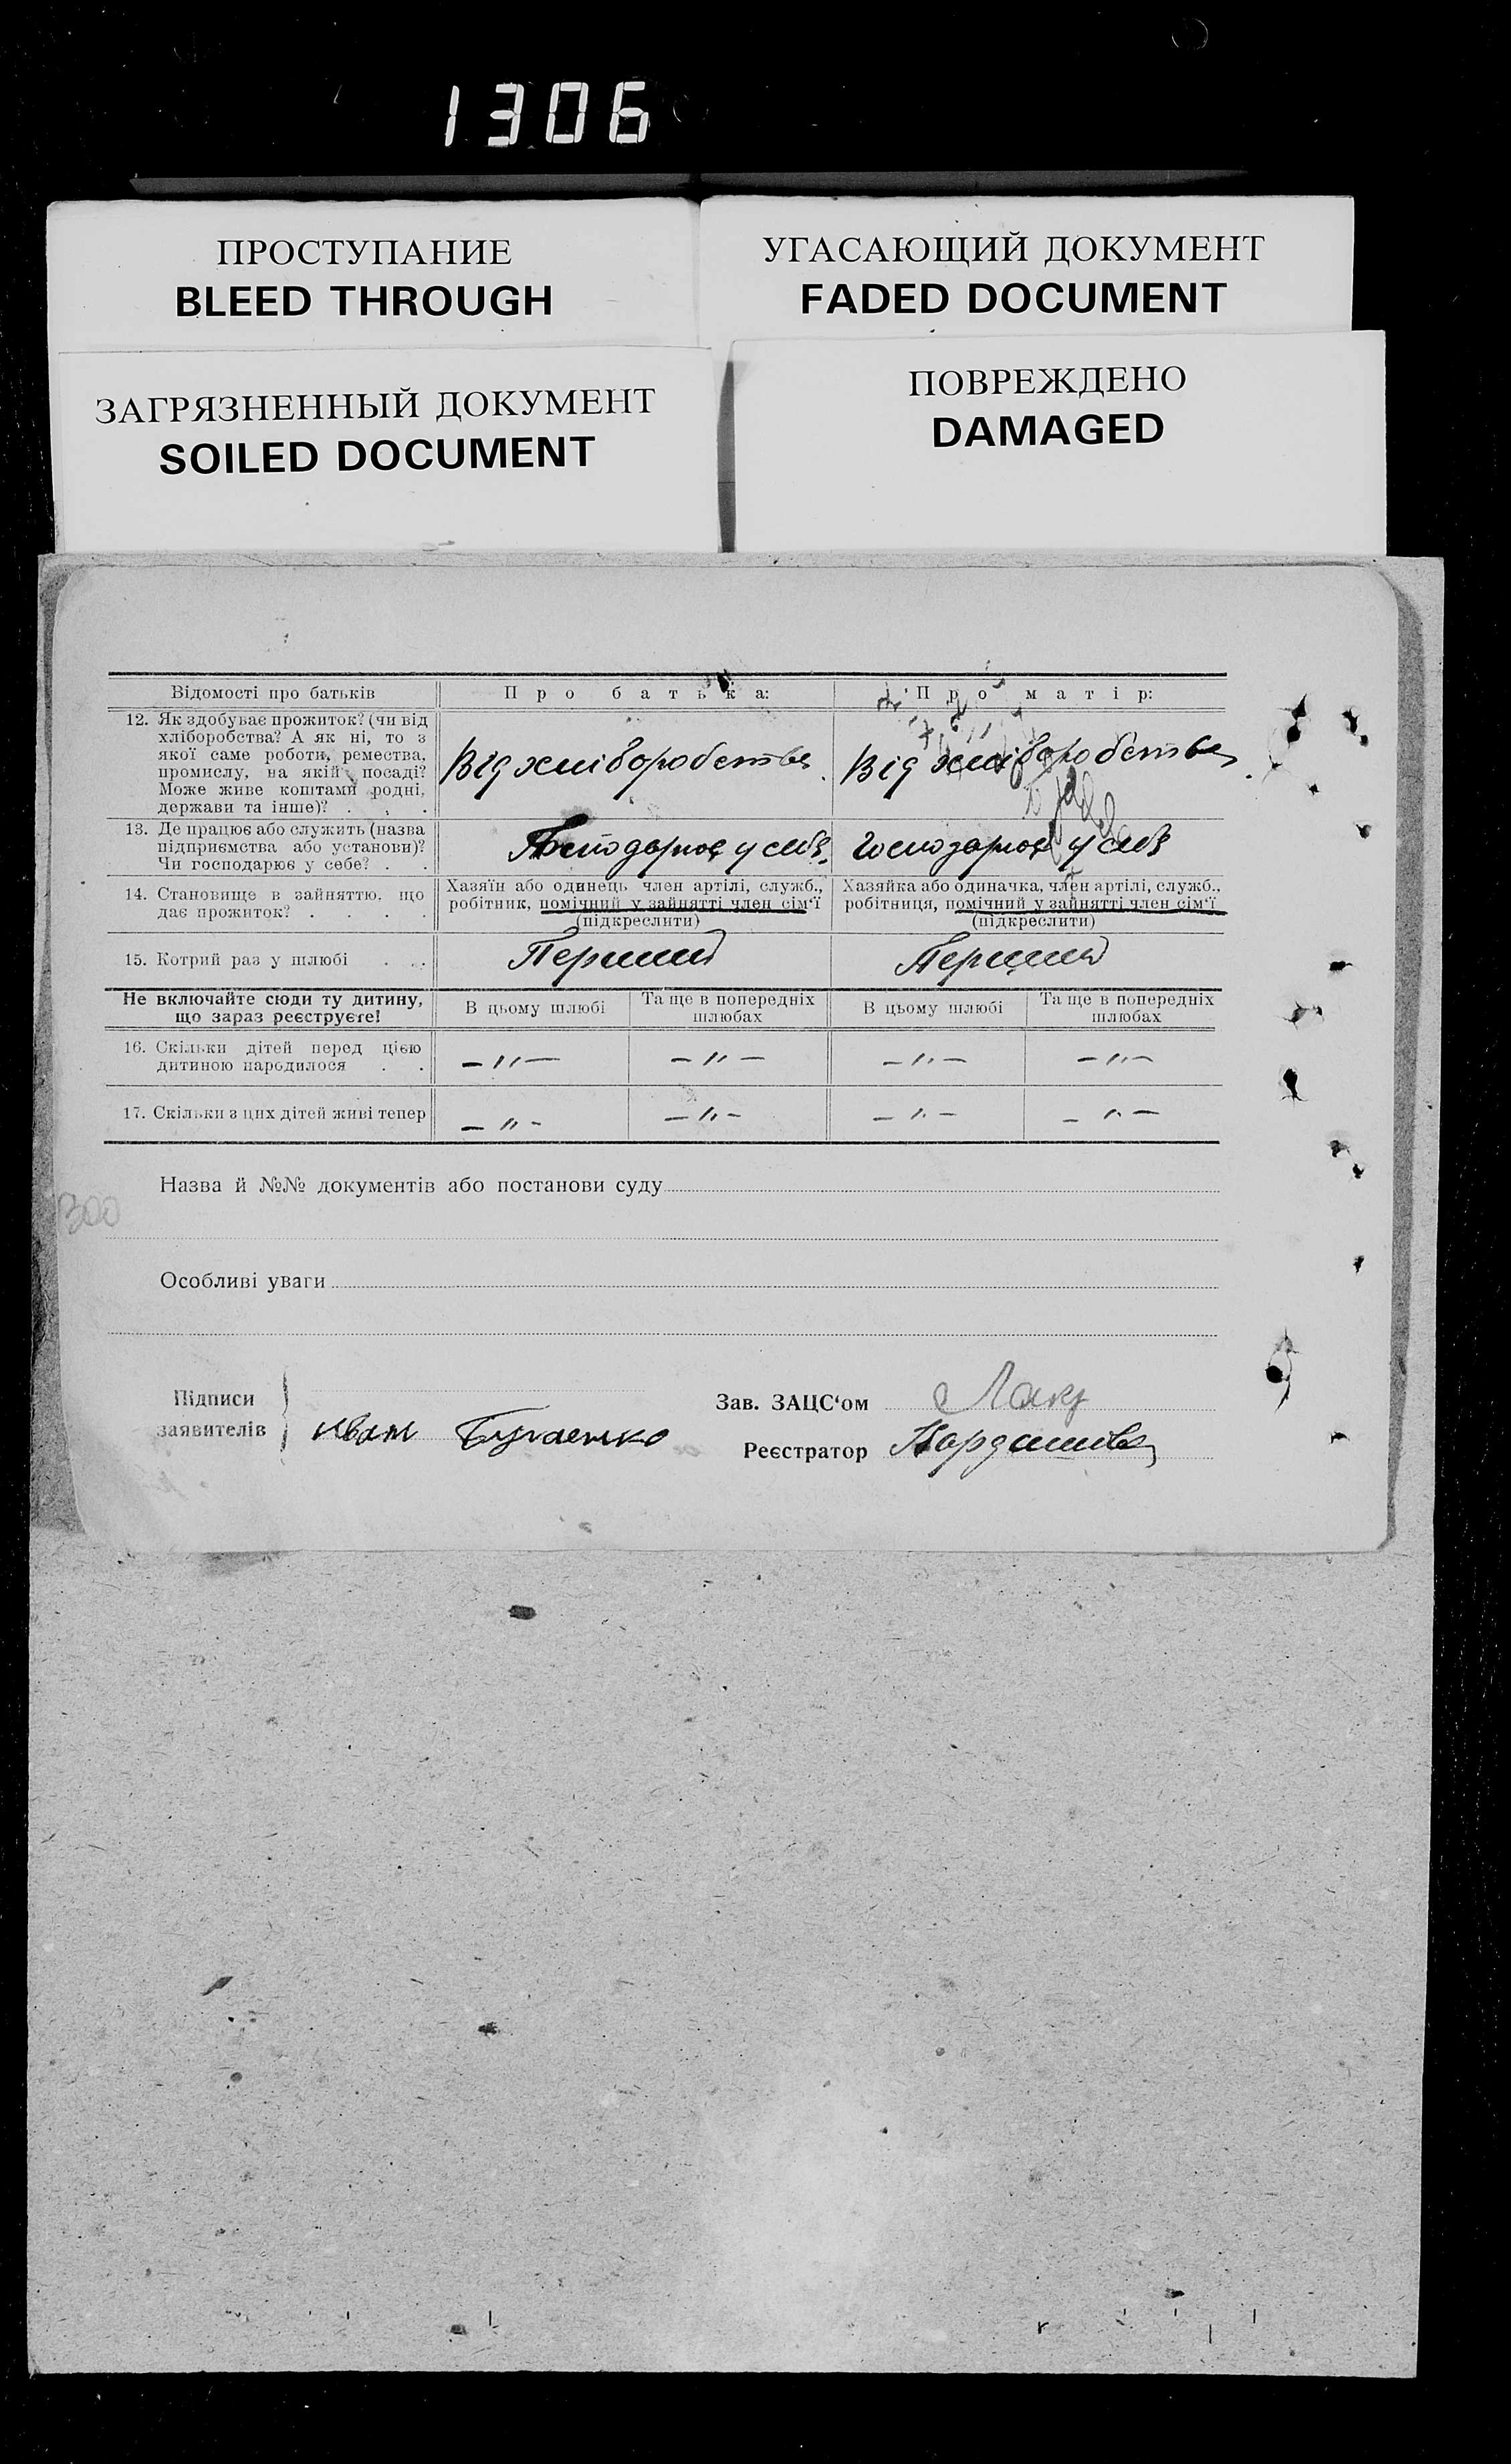 1306
ПРОСТУПАНИЕ
BLEED THROUGH
УГАСАЮЩИЙ ДОКУМЕНТ
FADED DOCUMENT
ЗАГРЯЗНЕННЫЙ ДОКУМЕНТ
SOILED DOCUMENT
ПОВРЕЖДЕНО
DAMAGED
Відомості про батьків
Про батька:
Про матір:
12. Як здобуває прожиток? (чи від
хліборобства? А як ні, то з
якої саме роботи, ремества,
промислу, на якій посаді?
Може живе коштами родні,
держави та інше)? . . .
Від хліборобства
Від хліборобства
13. Де працює або служить (назва
підприємства або установи)?
Чи господарює у себе? . .
Господарює у себе
Господарює у себе
14. Становище в зайняттю, що
дає прожиток? . . . .
Хазяїн або одинець член артілі, служб.,
робітник, помічний у зайнятті член сім'ї
(підкреслити)
Хазяйка або одиначка, член артілі, служб.,
робітниця, помічний у зайнятті член сім'ї
(підкреслити)
15. Котрий раз у шлюбі . .
Перший
Перший
Не включайте сюди ту дитину,
що зараз реєструєте!
В цьому шлюбі
Та ще в попередніх
шлюбах
В цьому шлюбі
Та ще в попередніх
шлюбах
16. Скільки дітей перед цією
дитиною народилося . .
— " —
— " —
— " —
— " —
17. Скільки з цих дітей живі тепер
— " —
— " —
— " —
— " —
Назва й №№ документів або постанови суду
300
Особливі уваги
Підписи
заявителів
Иван
Зав. ЗАЦС'ом
Реєстратор